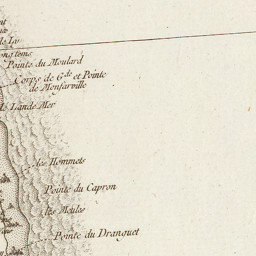 Pointe du Moulard
Corps de Gde et Pointe
de Monfarville
Lande Mer
les Hommets
Pointe du Capron
les Meules
Pointe du Dranguet